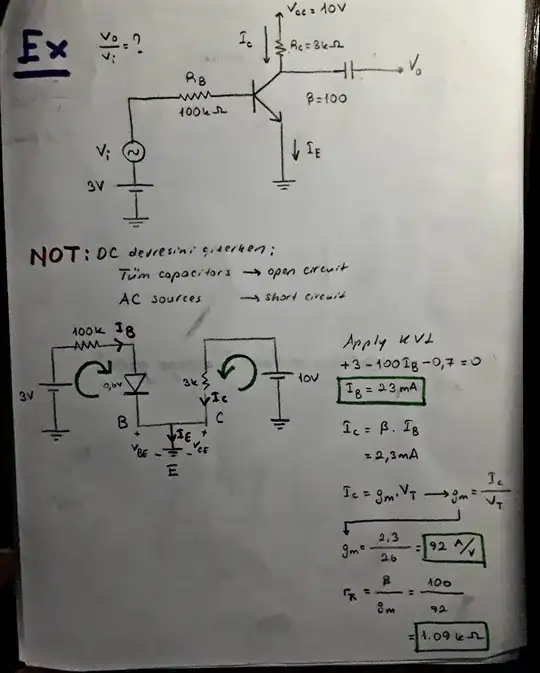 Ex
Vo/Vi = ?
Vcc = 10V
Ic
Rc = 3kΩ
Vo
RB
100kΩ
β=100
Vi
IE
3V
NOT: DC devresini çizerken;
Tüm capacitors → open circuit
AC sources → short circuit
100k
IB
3V
0,6V
3k
Ic
10V
B
IE
C
+
VBE
-
-
VCE
+
E
Apply KVL
+3-100IB-0,7=0
IB = 23mA
Ic = β. IB
= 2,3mA
Ic = gm.VT → gm = Ic/VT
gm = 2,3/26 = 92 A/V
rπ = β/gm = 100/92
= 1.09kΩ